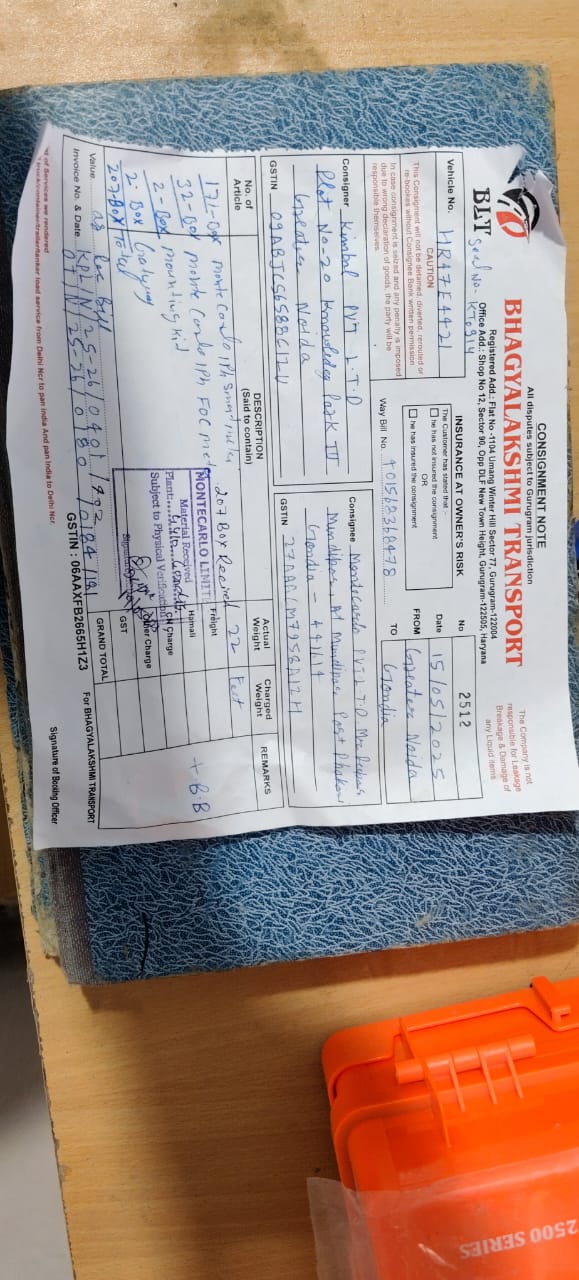 CONSIGNMENT NOTE
All disputes subject to Gurugram jurisdiction
The Company is not
responsible for Leakage
Breakage & Damage of
any Liquid items
BHAGYALAKSHMI TRANSPORT
Registered Add.: Flat No.-1104 Umang Winter Hill Sector 77, Gurugram-122004
Office Add.: Shop No. 12, Sector 90, Opp DLF New Town Height, Gurugram-122505, Haryana
BLT
Seal No. KT0914
Vehicle No. HR47E4421
INSURANCE AT OWNER'S RISK
No 2512
CAUTION
This Consignment will not be detained, diverted, rerouted or
re-bookes without Consignee Bank written permission
In case consignment is seized and any penalty is imposed
due to wrong declaration of goods, the party will be
responsible themselves.
The Customer has stated that
he has not insured the consignment
OR
he has insured the consignment
Way Bill No. 401568368478
Date 15/05/2025
FROM Greater Noida
TO Gondia
Consigner Kimbal PVT LTD
Plot No-20 Knowledge Park III
Greater Noida
GSTIN
Consignee Montecarlo PVT LTD
Mundipar At Mundipar Post
Gondia - 441614
GSTIN 27AAACM7958A1ZH
No. of
Article
DESCRIPTION
(Said to contain)
Actual
Weight
Charged
Weight
REMARKS
171-Box Monte Carlo 1Ph Smart
32-Box Monte Carlo 1Ph FOC
2-Box Mounting Kid
2-Box
207 Box Total
207 Box
22 Feet
+ BB
MONTECARLO LIMITED
Material Received
Plant:
Subject to Physical Verification
Freight
Hamali
Charge
Other Charge
GST
GRAND TOTAL
Value as per Bill
Invoice No. & Date
GSTIN : 06AAXFB2665H1Z3
For BHAGYALAKSHMI TRANSPORT
of Services we rendered
load service from Delhi Ncr to pan India And pan India to Delhi Ncr.
Signature of Booking Officer
2500 SERIES